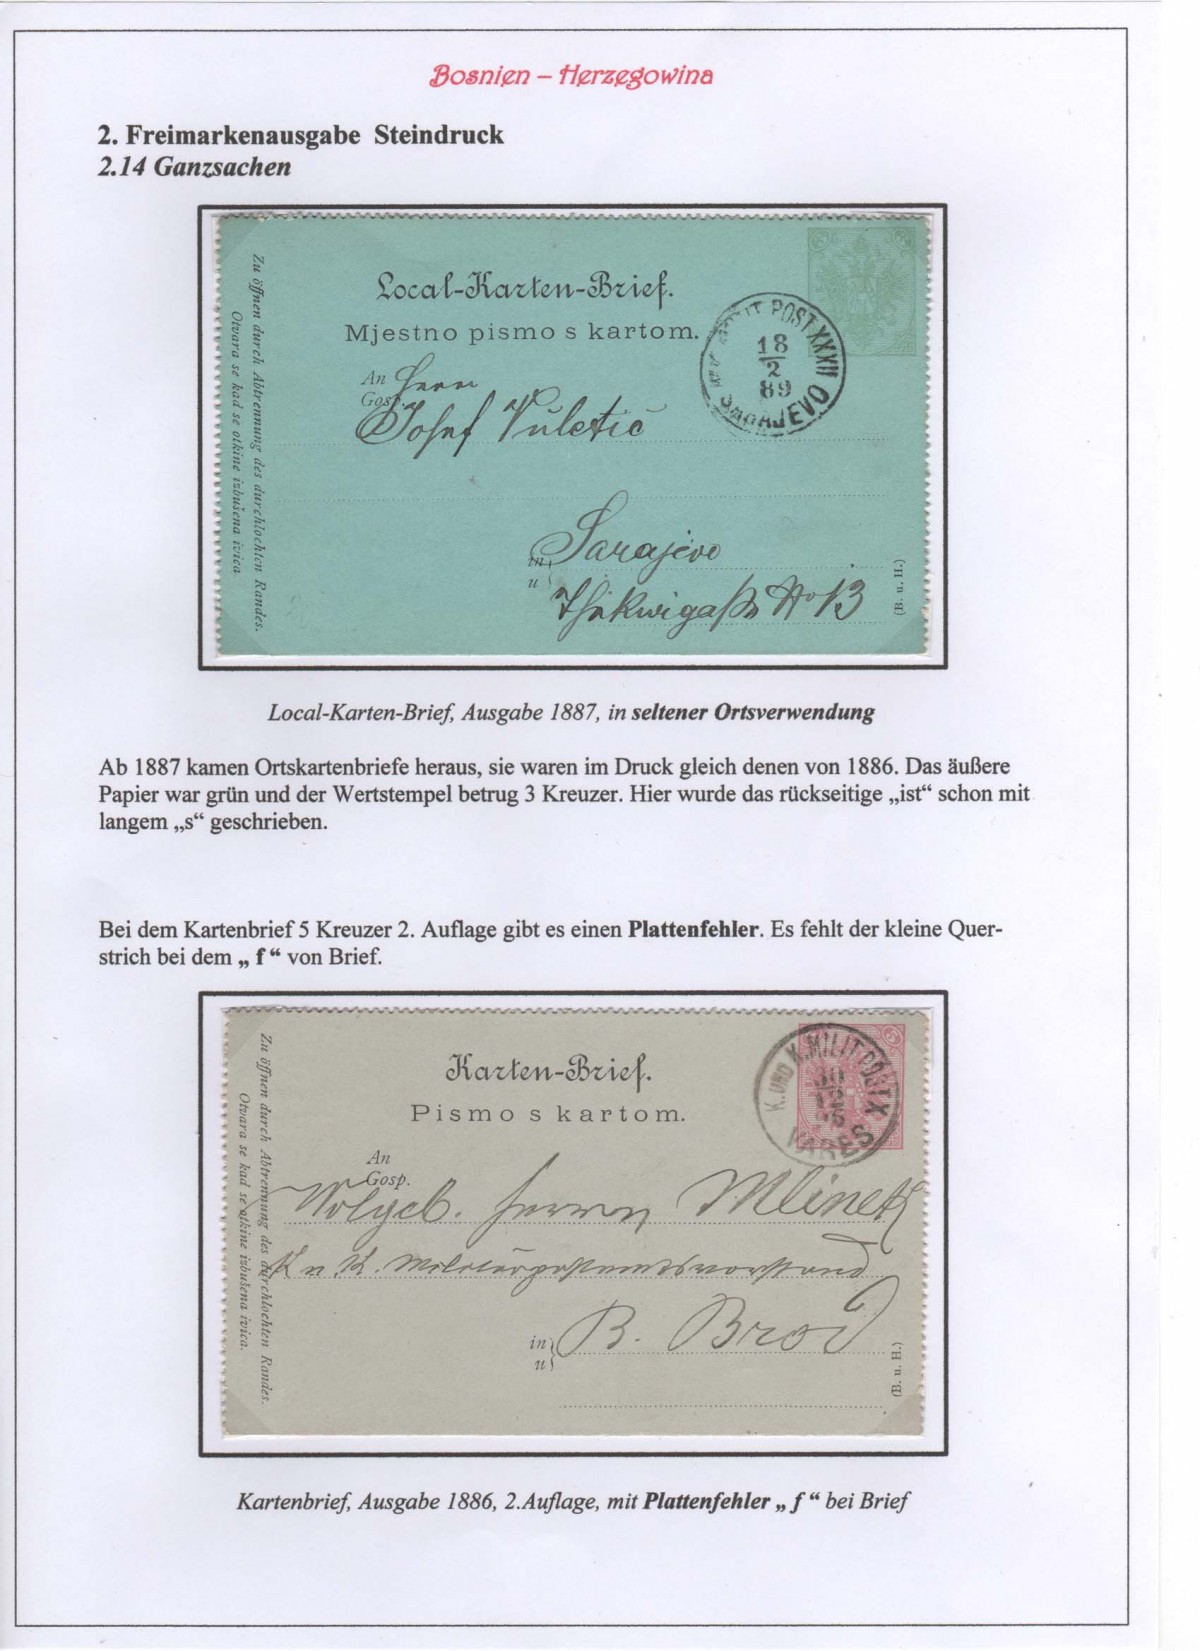 Bosnien – Herzegowina
2. Freimarkenausgabe Steindruck
2.14 Ganzsachen
Zu öffnen durch Abtrennung des durchlochten Randes.
Otvara se kad se otkine izbušena ivica
Local-Karten-Brief.
Mjestno pismo s kartom.
MILIT POST XXXII
18
2
89
SARAJEVO
An Herrn
Gosp.
Josef Vuletić
in Sarajevo
u
No 13
(B. u. H.)
Local-Karten-Brief, Ausgabe 1887, in seltener Ortsverwendung
Ab 1887 kamen Ortskartenbriefe heraus, sie waren im Druck gleich denen von 1886. Das äußere
Papier war grün und der Wertstempel betrug 3 Kreuzer. Hier wurde das rückseitige „ist“ schon mit
langem „s“ geschrieben.
Bei dem Kartenbrief 5 Kreuzer 2. Auflage gibt es einen Plattenfehler. Es fehlt der kleine Quer-
strich bei dem „ f “ von Brief.
Zu öffnen durch Abtrennung des durchlochten Randes.
Otvara se kad se otkine izbušena ivica.
Karten-Brief.
Pismo s kartom.
5
K. UND K. MILIT. POST X
30
12
VARES
An
Gosp.
Wolgeb. Herrn Mlinek
K u. K. Militärpostamtsvorstand
in B. Brod
u
(B. u. H.)
Kartenbrief, Ausgabe 1886, 2.Auflage, mit Plattenfehler „ f “ bei Brief